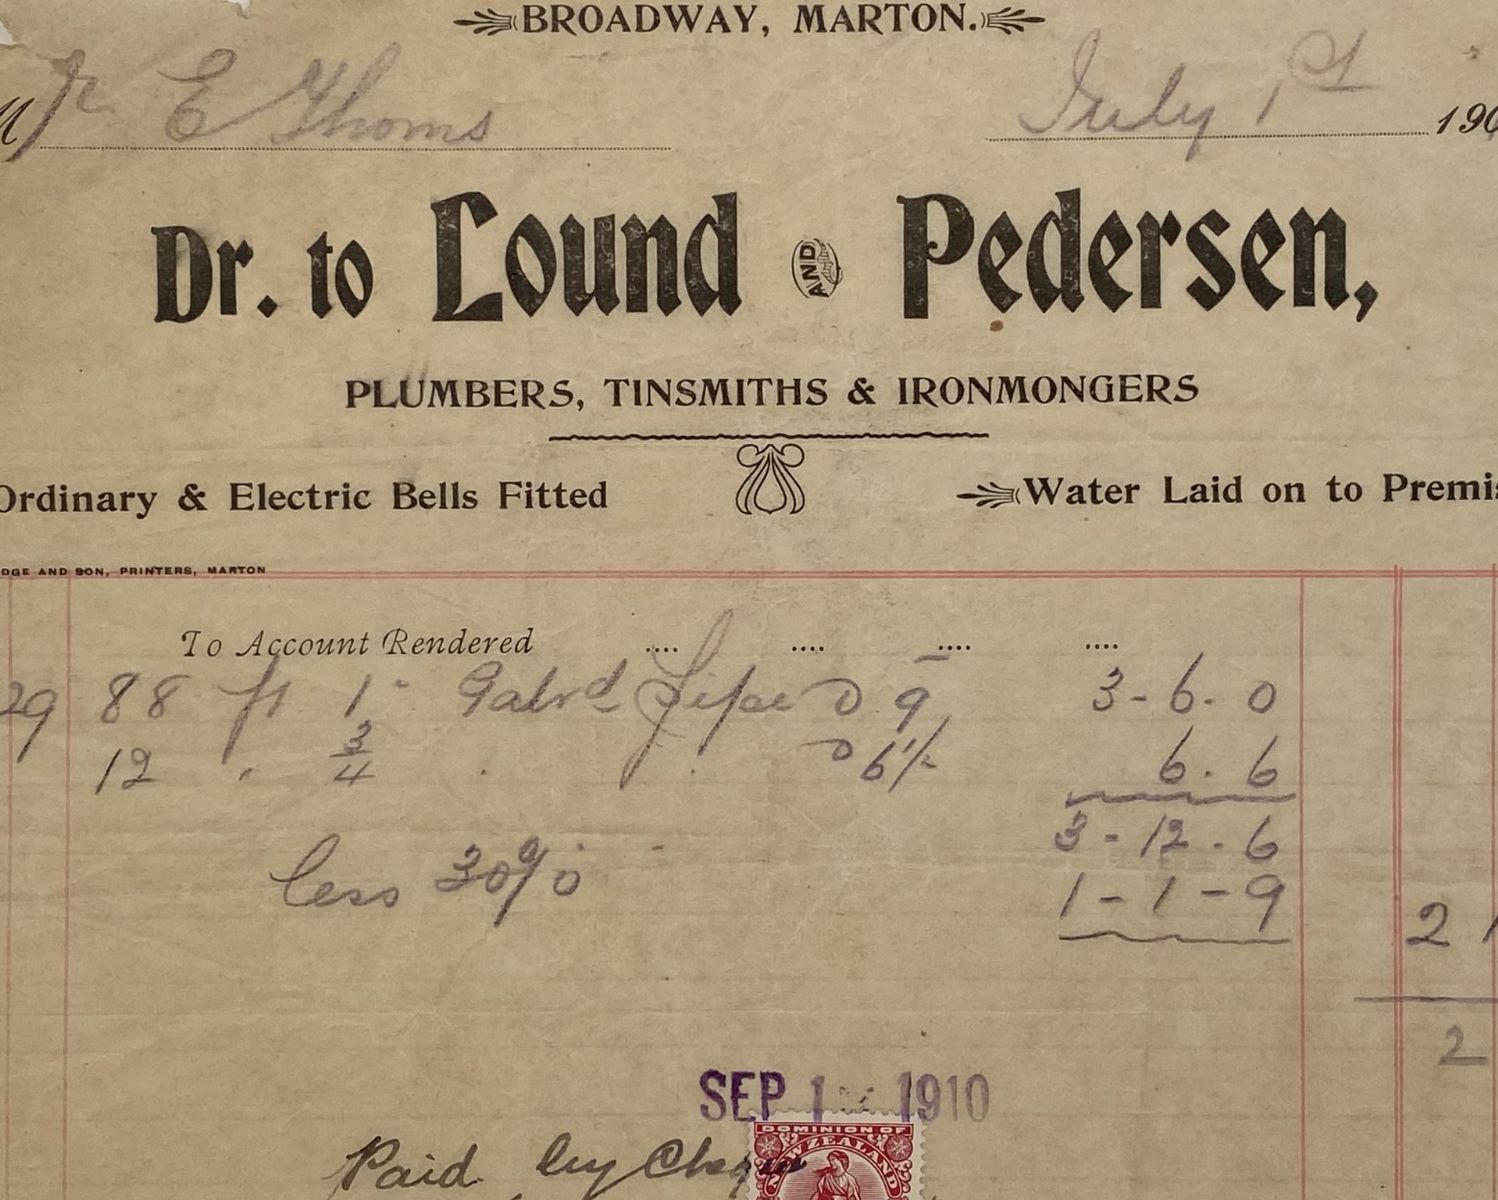 BROADWAY, MARTON.
Mr E Thoms July 1st 190
Dr. to Lound AND Pedersen,
PLUMBERS, TINSMITHS & IRONMONGERS
Ordinary & Electric Bells Fitted Water Laid on to Premis
DGE AND SON, PRINTERS, MARTON
To Account Rendered .... .... .... ....
29 88 ft 1" Galvd Pipe @ 9 3-6-0
12 " 3/4 " " @ 6½ 6.6
3-12-6
less 30% 1-1-9 2 1
2
SEP 1 1910
Paid by Cheque
DOMINION OF
NEW ZEALAND